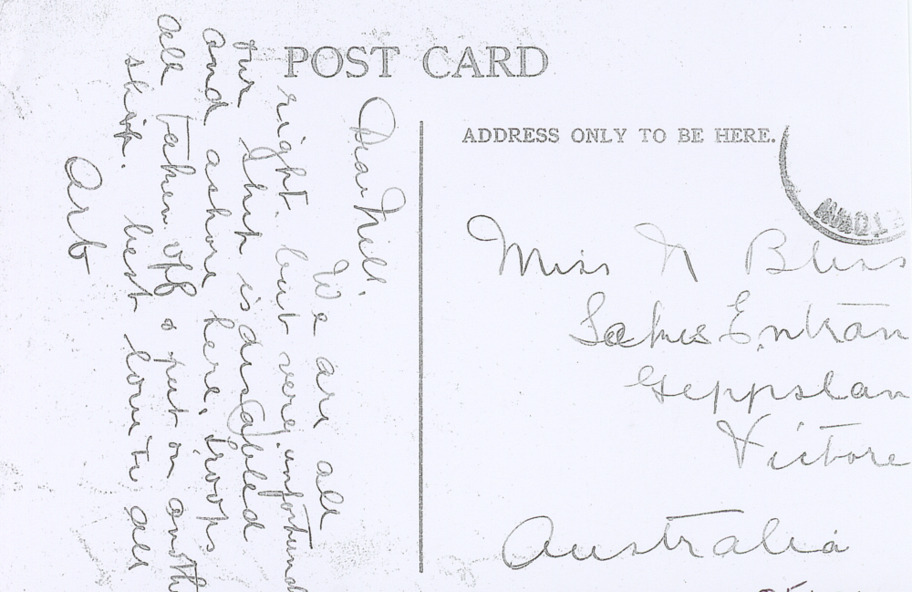 POST CARD
ADDRESS ONLY TO BE HERE.
Dear Nell,
We are all
right but very unfortund
our ship is disabled
and ashore here. troops
all taken off & put on anoth
ship. best love to all
Arb
Miss N Bliss
Lakes Entran
Gippslan
Victore
Australia